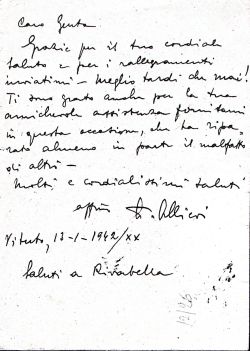 Caro Genta
Grazie per il tuo cordiale
saluto e per i rallegramenti
inviatimi – Meglio tardi che mai!
Ti sono grato anche per la tua
amichevole assistenza fornitami
in questa occasione, che ha ripa-
rato almeno in parte il malfatto
di altri –
Molti e cordialissimi saluti
affmo Allievi
13-1-1942/XX
Saluti a Rivabella